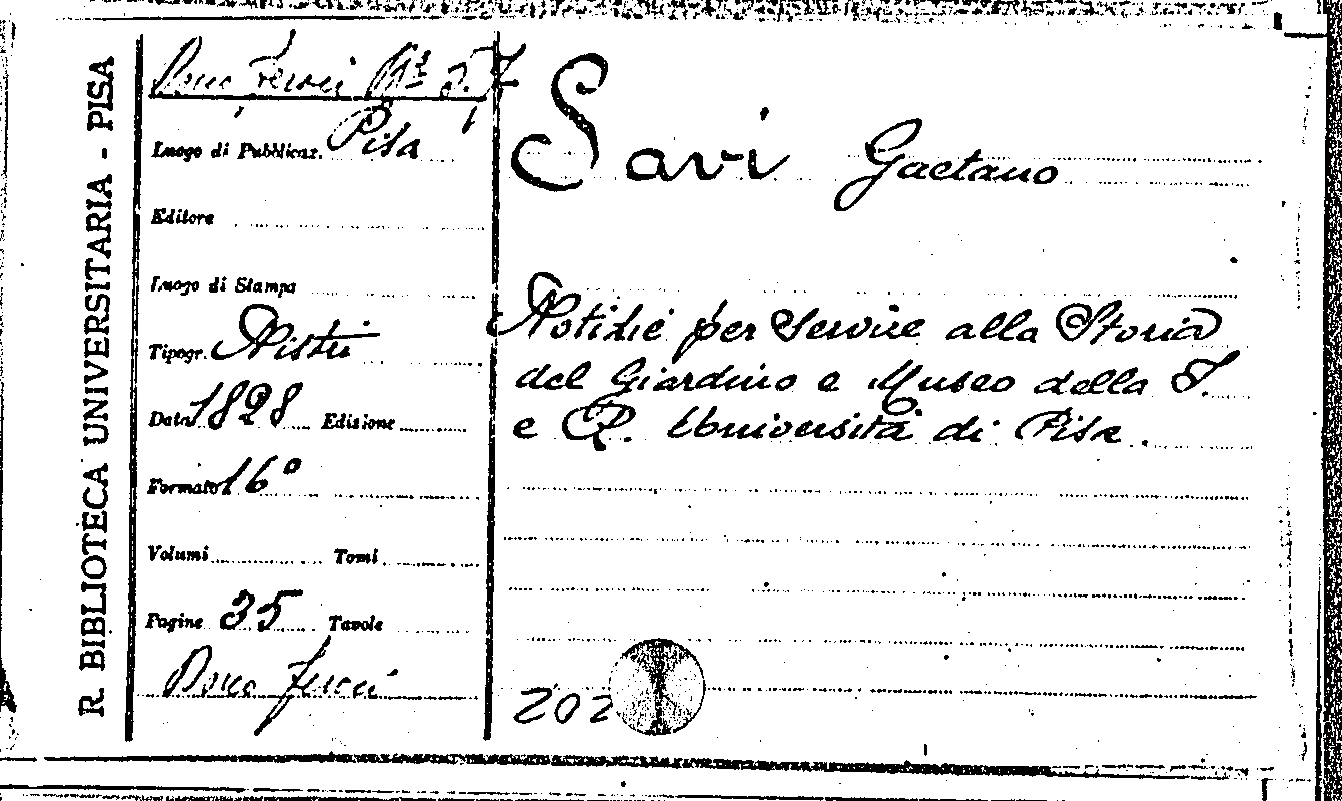 R. BIBLIOTECA UNIVERSITARIA - PISA
Dono
Luogo di Pubblicaz. Pisa
Editore
Luogo di Stampa
Tipogr. Nistri
Data 1828 Edizione
Formato 16°
Volumi Tomi
Pagine 35 Tavole
Dono
Savi Gaetano
Notizie per Servire alla Storia
del Giardino e Museo della I.
e R. Università di Pisa.
202